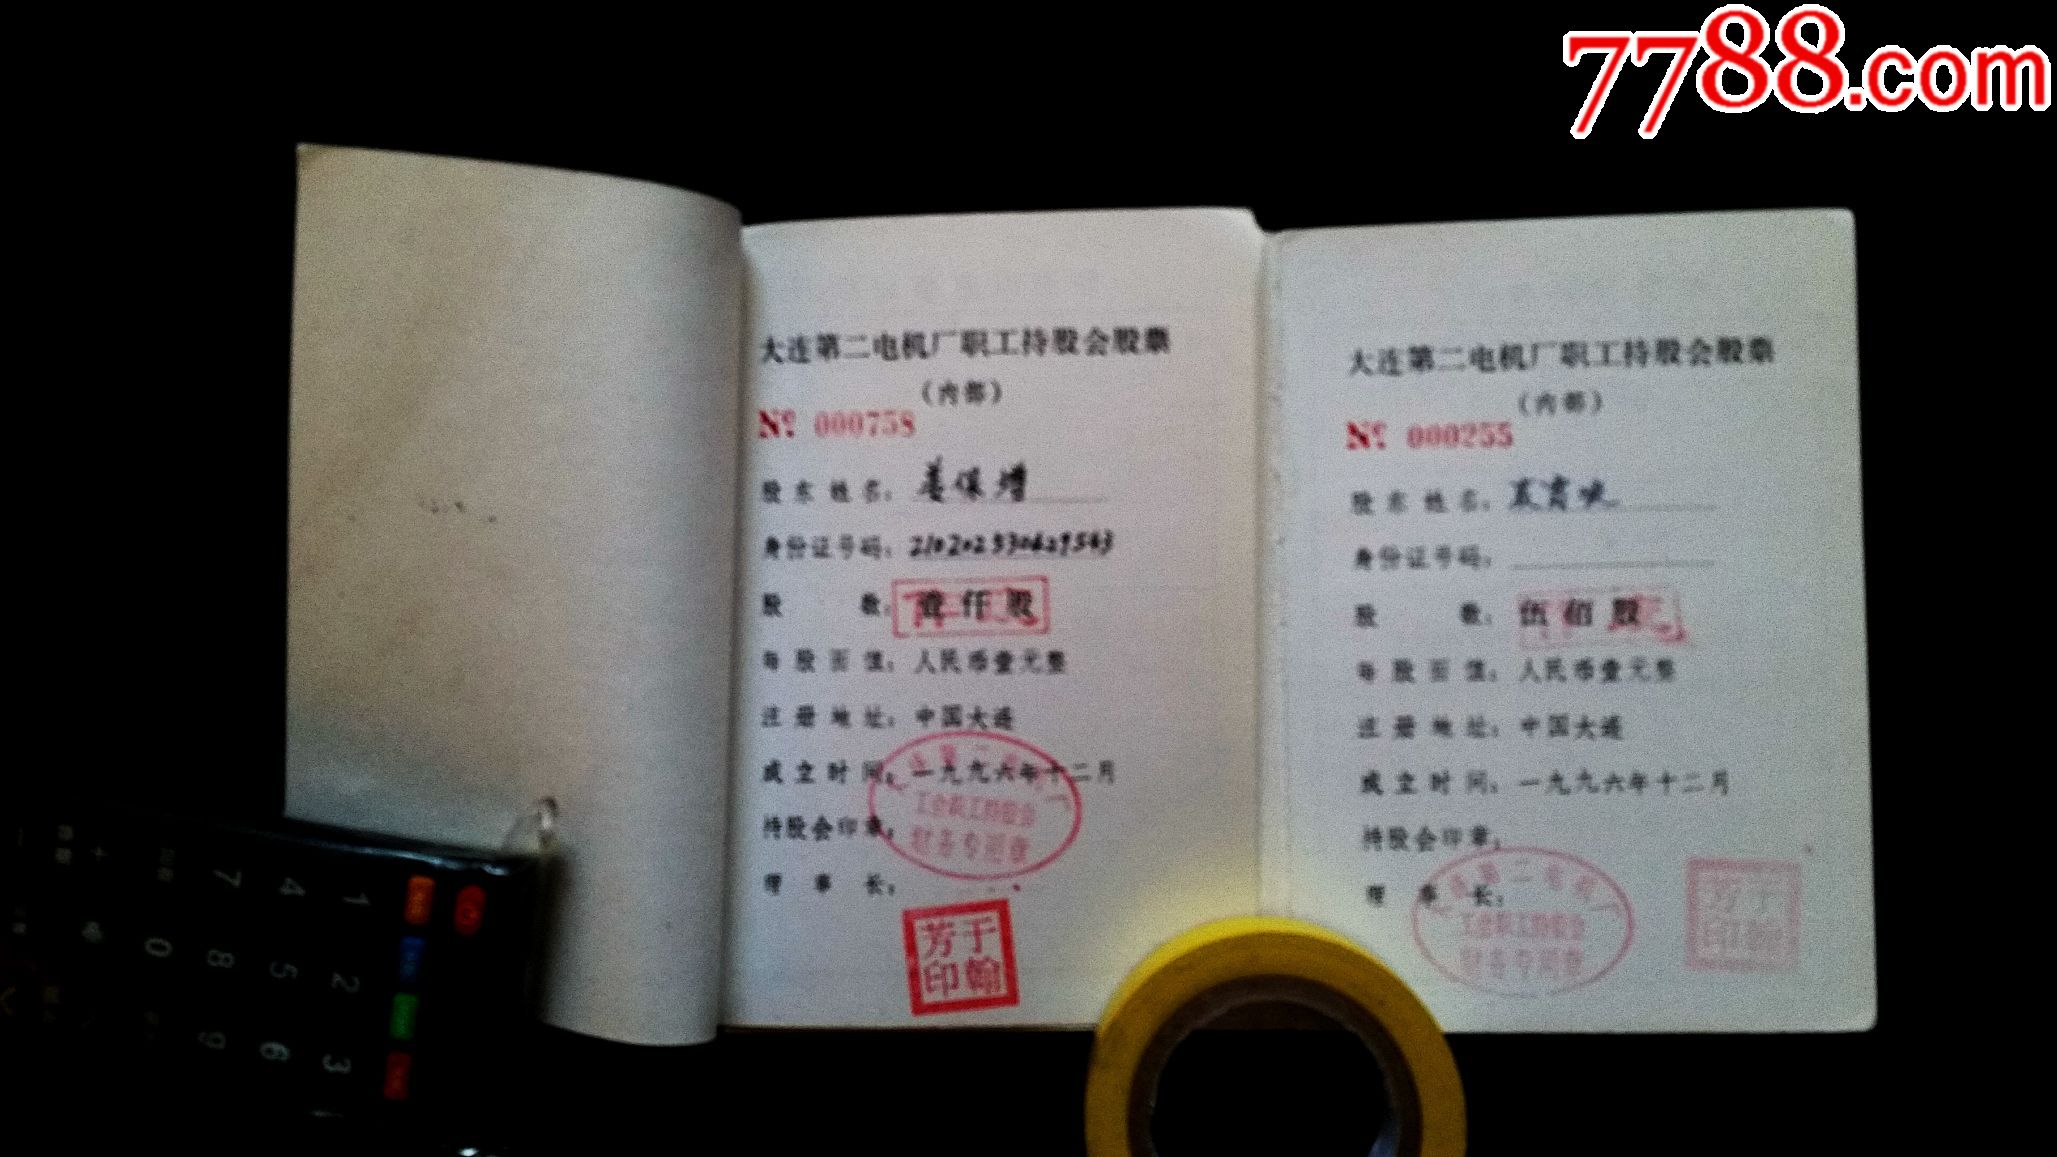 7788.com
大连第二电机厂职工持股会股票
（内部）
№ 000758
股东姓名：姜保增
身份证号码：210202530629543
股 数：壹仟股
每股面值：人民币壹元整
注册地址：中国大连
成立时间：一九九六年十二月
持股会印章：
第二
工会职工持股会
财务专用章
理事长：
芳于
印翰
大连第二电机厂职工持股会股票
（内部）
№ 000255
股东姓名：
身份证号码：
股 数：伍佰股
每股面值：人民币壹元整
注册地址：中国大连
成立时间：一九九六年十二月
持股会印章：
理事长：
第二电机厂
工会职工持股会
财务专用章
芳于
印翰
1 4 7
2 5 8 0
3 6 9